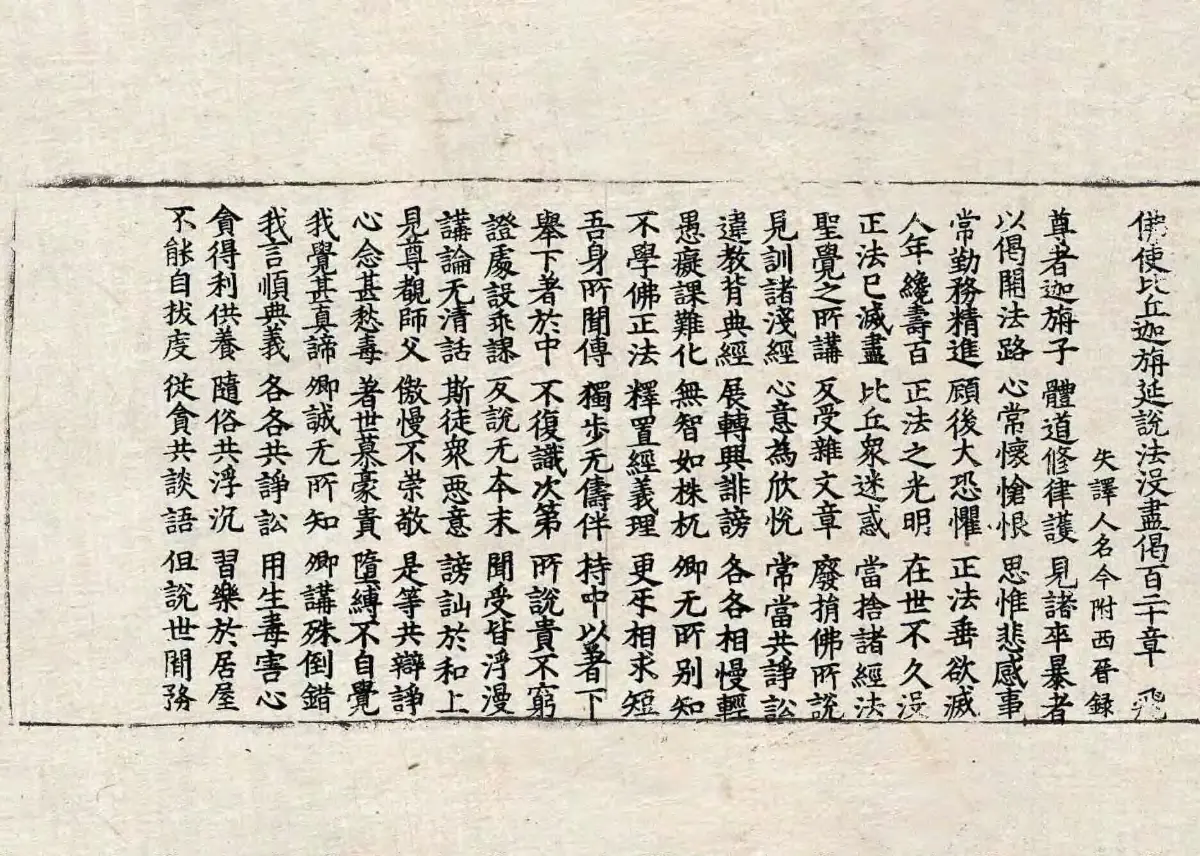 佛使比丘迦旃延說法沒盡偈百二十章 飛
失譯人名今附西晉錄
尊者迦旃子 體道修律護 見諸卒暴者
以偈開法路 心常懷愴恨 思惟悲感事
常勤務精進 顧後大恐懼 正法垂欲滅
人年纔壽百 正法之光明 在世不久沒
正法已滅盡 比丘眾迷惑 當捨諸經法
聖覺之所講 反受雜文章 廢捐佛所說
見訓諸淺經 心意為欣悅 常當共諍訟
違教背典經 展轉興誹謗 各各相慢輕
愚癡課難化 無智如株杌 卿无所別知
不學佛正法 釋置經義理 更互相求短
吾身所聞傳 獨步无儔伴 持中以著下
舉下著於中 不復識次第 所說貴不窮
證處設乖課 反說无本末 聞受皆浮漫
講論无清話 斯徒眾惡意 謗訕於和上
見尊覩師父 傲慢不崇敬 是等共辯諍
心念甚愁毒 著世慕豪貴 墮縛不自覺
我覺甚真諦 卿誠无所知 卿講殊倒錯
我言順典義 各各共諍訟 用生毒害心
貪得利供養 隨俗共浮沉 習樂於居屋
不能自拔度 從貪共談語 但說世間務